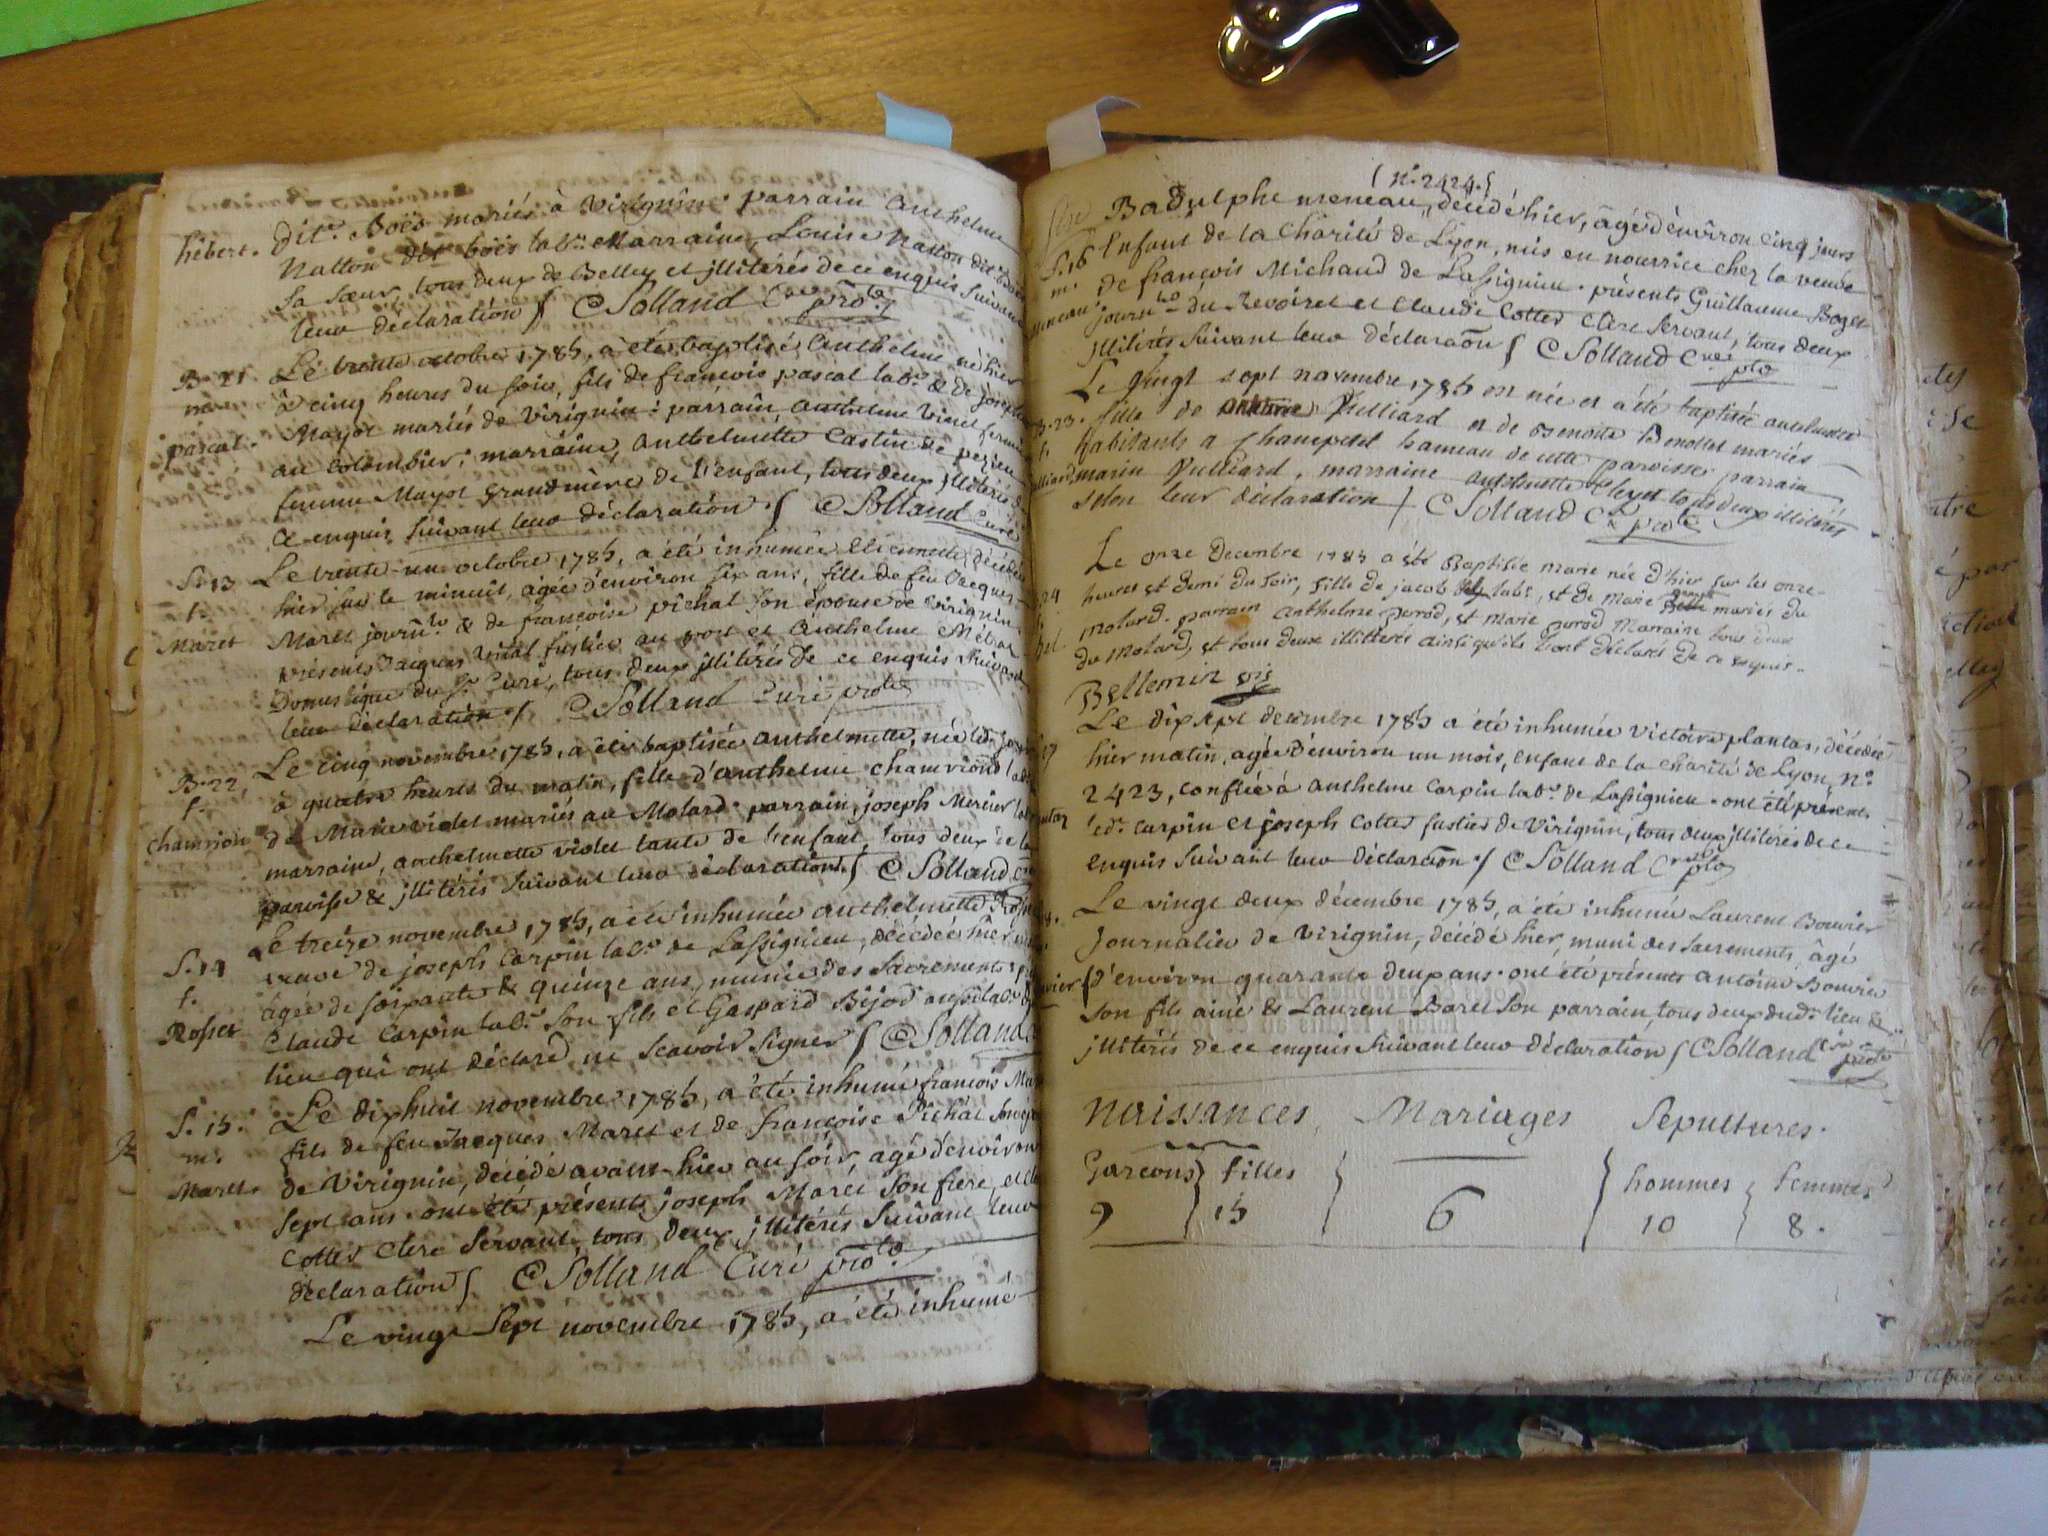 hébert. dit. Boës mariés à Virignin. parrain Anthelme
Natton dit boës lab.r Marraine, Louise Natton dit
Sa Sœur, tous deux de Belley et jllitérés de ce enquis Suivant
leur déclaration / C Solland Curé pro.
B. 21. Le trente octobre 1785, a été baptisé Anthelme né hier
m. à cinq heures du Soir, fils de françois pascal lab.r & de
pascal. Mayot mariés de Virignin : parrain, Anthelme Vinet
au Colombier; marraine, Anthelmette Castin de pezieu
femme Mayot grand-mère de l'enfant, tous deux jllitérés
ce enquis Suivant leur déclaration. / C Solland Curé
S. 13 Le trente-un octobre 1785, a été inhumée décédée
f. hier sur le minuit, agée d'environ six ans, fille de feu Jacques
Maret Maret journ.r & de françoise pichat Son épouse de Virignin.
présents Jacques fustier au port et Anthelme Métral
Domestique du S.r Curé, tous deux jllitérés de ce enquis Suivant
leur déclaration / C Solland Curé pro
B. 22, Le Cinq novembre 1785, a été baptisée Anthelmette, née
f. à quatre heures du matin, fille d'Anthelme chamrion
chamrion de Marie Violet mariés au Molard. parrain, joseph Mercier
marraine, anthelmette violet tante de l'enfant, tous deux de la
paroisse & jllitérés Suivant leur déclaration / C Solland
S. 14 Le treize novembre 1785, a été inhumée Anthelmette
f. veuve de joseph Carpin lab.r de Lassignieu, décédée hier
Rosset agée de soixante & quinze ans, munie des Sacrements
Claude Carpin lab.r Son fils et Gaspard Bijod aussi lab.r
lieu qui ont déclaré ne Scavoir Signer / C Solland
S. 15. Le dixhuit novembre 1785, a été inhumé françois
m. fils de feu Jacques Maret et de françoise Pichat
Maret. de Virignin, décédé avant-hier au Soir, agé d'environ
Sept ans. ont été présents joseph Maret Son frere, et
Cottet Clerc Servant, tous deux jllitérés Suivant leur
déclaration / C Solland Curé pro.
Le vingt Sept novembre 1785, a été inhumé
( N.° 2424. )
Badulphe meneau, décédé hier, âgé d'environ Cinq jours
S. 16 Enfant de la Charité de Lyon, mis en nourrice chez la veuve
m. de françois Michaud de Lassignieu. présents Guillaume Boget
meneau journ. du Revoiret et Claude Cottet Clerc Servant, tous deux
jllitérés Suivant leur déclaration / C Solland C
Le vingt Sept novembre 1785 est née et a été baptisée
B. 23. fille de Pulliard et de Benoite mariés
f. habitants a Champetel hameau de cette paroisse parrain
marin Pulliard, marraine tous deux illitérés
selon leur déclaration / C Solland C
Le onze Decembre 1785 a été Baptisée marie née d'hier sur les onze
24 heures et demi du soir, fille de jacob lab.r, et de Marie mariés du
molard. parrain anthelme perrod, et marie perrod marraine tous deux
du Molard, et tous deux illitterés ainsi qu'ils l'ont déclaré de ce enquis.
Bellemin
Le dix Sept decembre 1785 a été inhumée Victoire plantar, décédée
17 hier matin, agée d'environ un mois, enfant de la charité de Lyon, N.°
2423, confiée à Anthelme Carpin lab.r de Lassignieu. ont été présents
led. Carpin et joseph Cottet fustier de Virignin, tous deux jllitérés de ce
enquis Suivant leur déclaration. / C Solland C
Le vingt deux décembre 1785, a été inhumé Laurent Bouvier
Journalier de Virignin, décédé hier, muni des Sacrements, âgé
d'environ quarante deux ans. ont été présents Antoine Bouvier
Son fils ainé & Laurent Baret Son parrain, tous deux dud. lieu &
jllitérés de ce enquis Suivant leur déclaration / C Solland
Naissances, Mariages Sepultures.
Garcons } filles } } hommes } femmes
9 } 15 } 6 } 10 } 8.